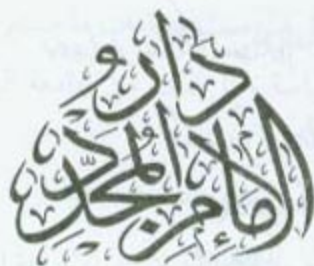 دار
الإمام المجدد